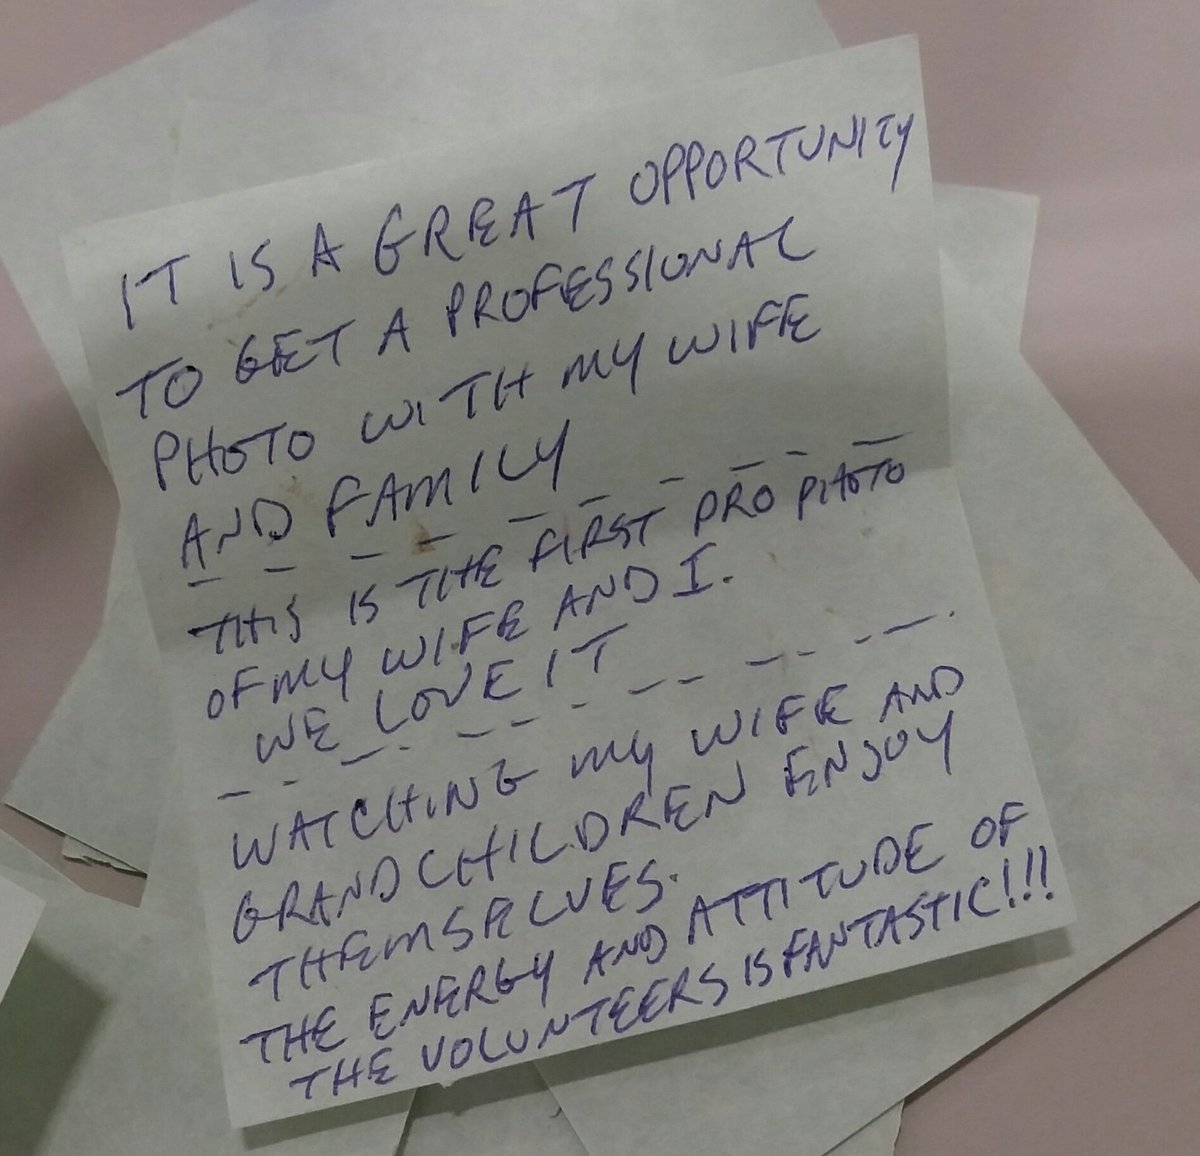 IT IS A GREAT OPPORTUNITY
TO GET A PROFESSIONAL
PHOTO WITH MY WIFE
AND FAMILY
THIS IS THE FIRST PRO PHOTO
OF MY WIFE AND I.
WE LOVE IT
WATCHING MY WIFE AND
GRANDCHILDREN ENJOY
THEMSELVES.
THE ENERGY AND ATTITUDE OF
THE VOLUNTEERS IS FANTASTIC!!!